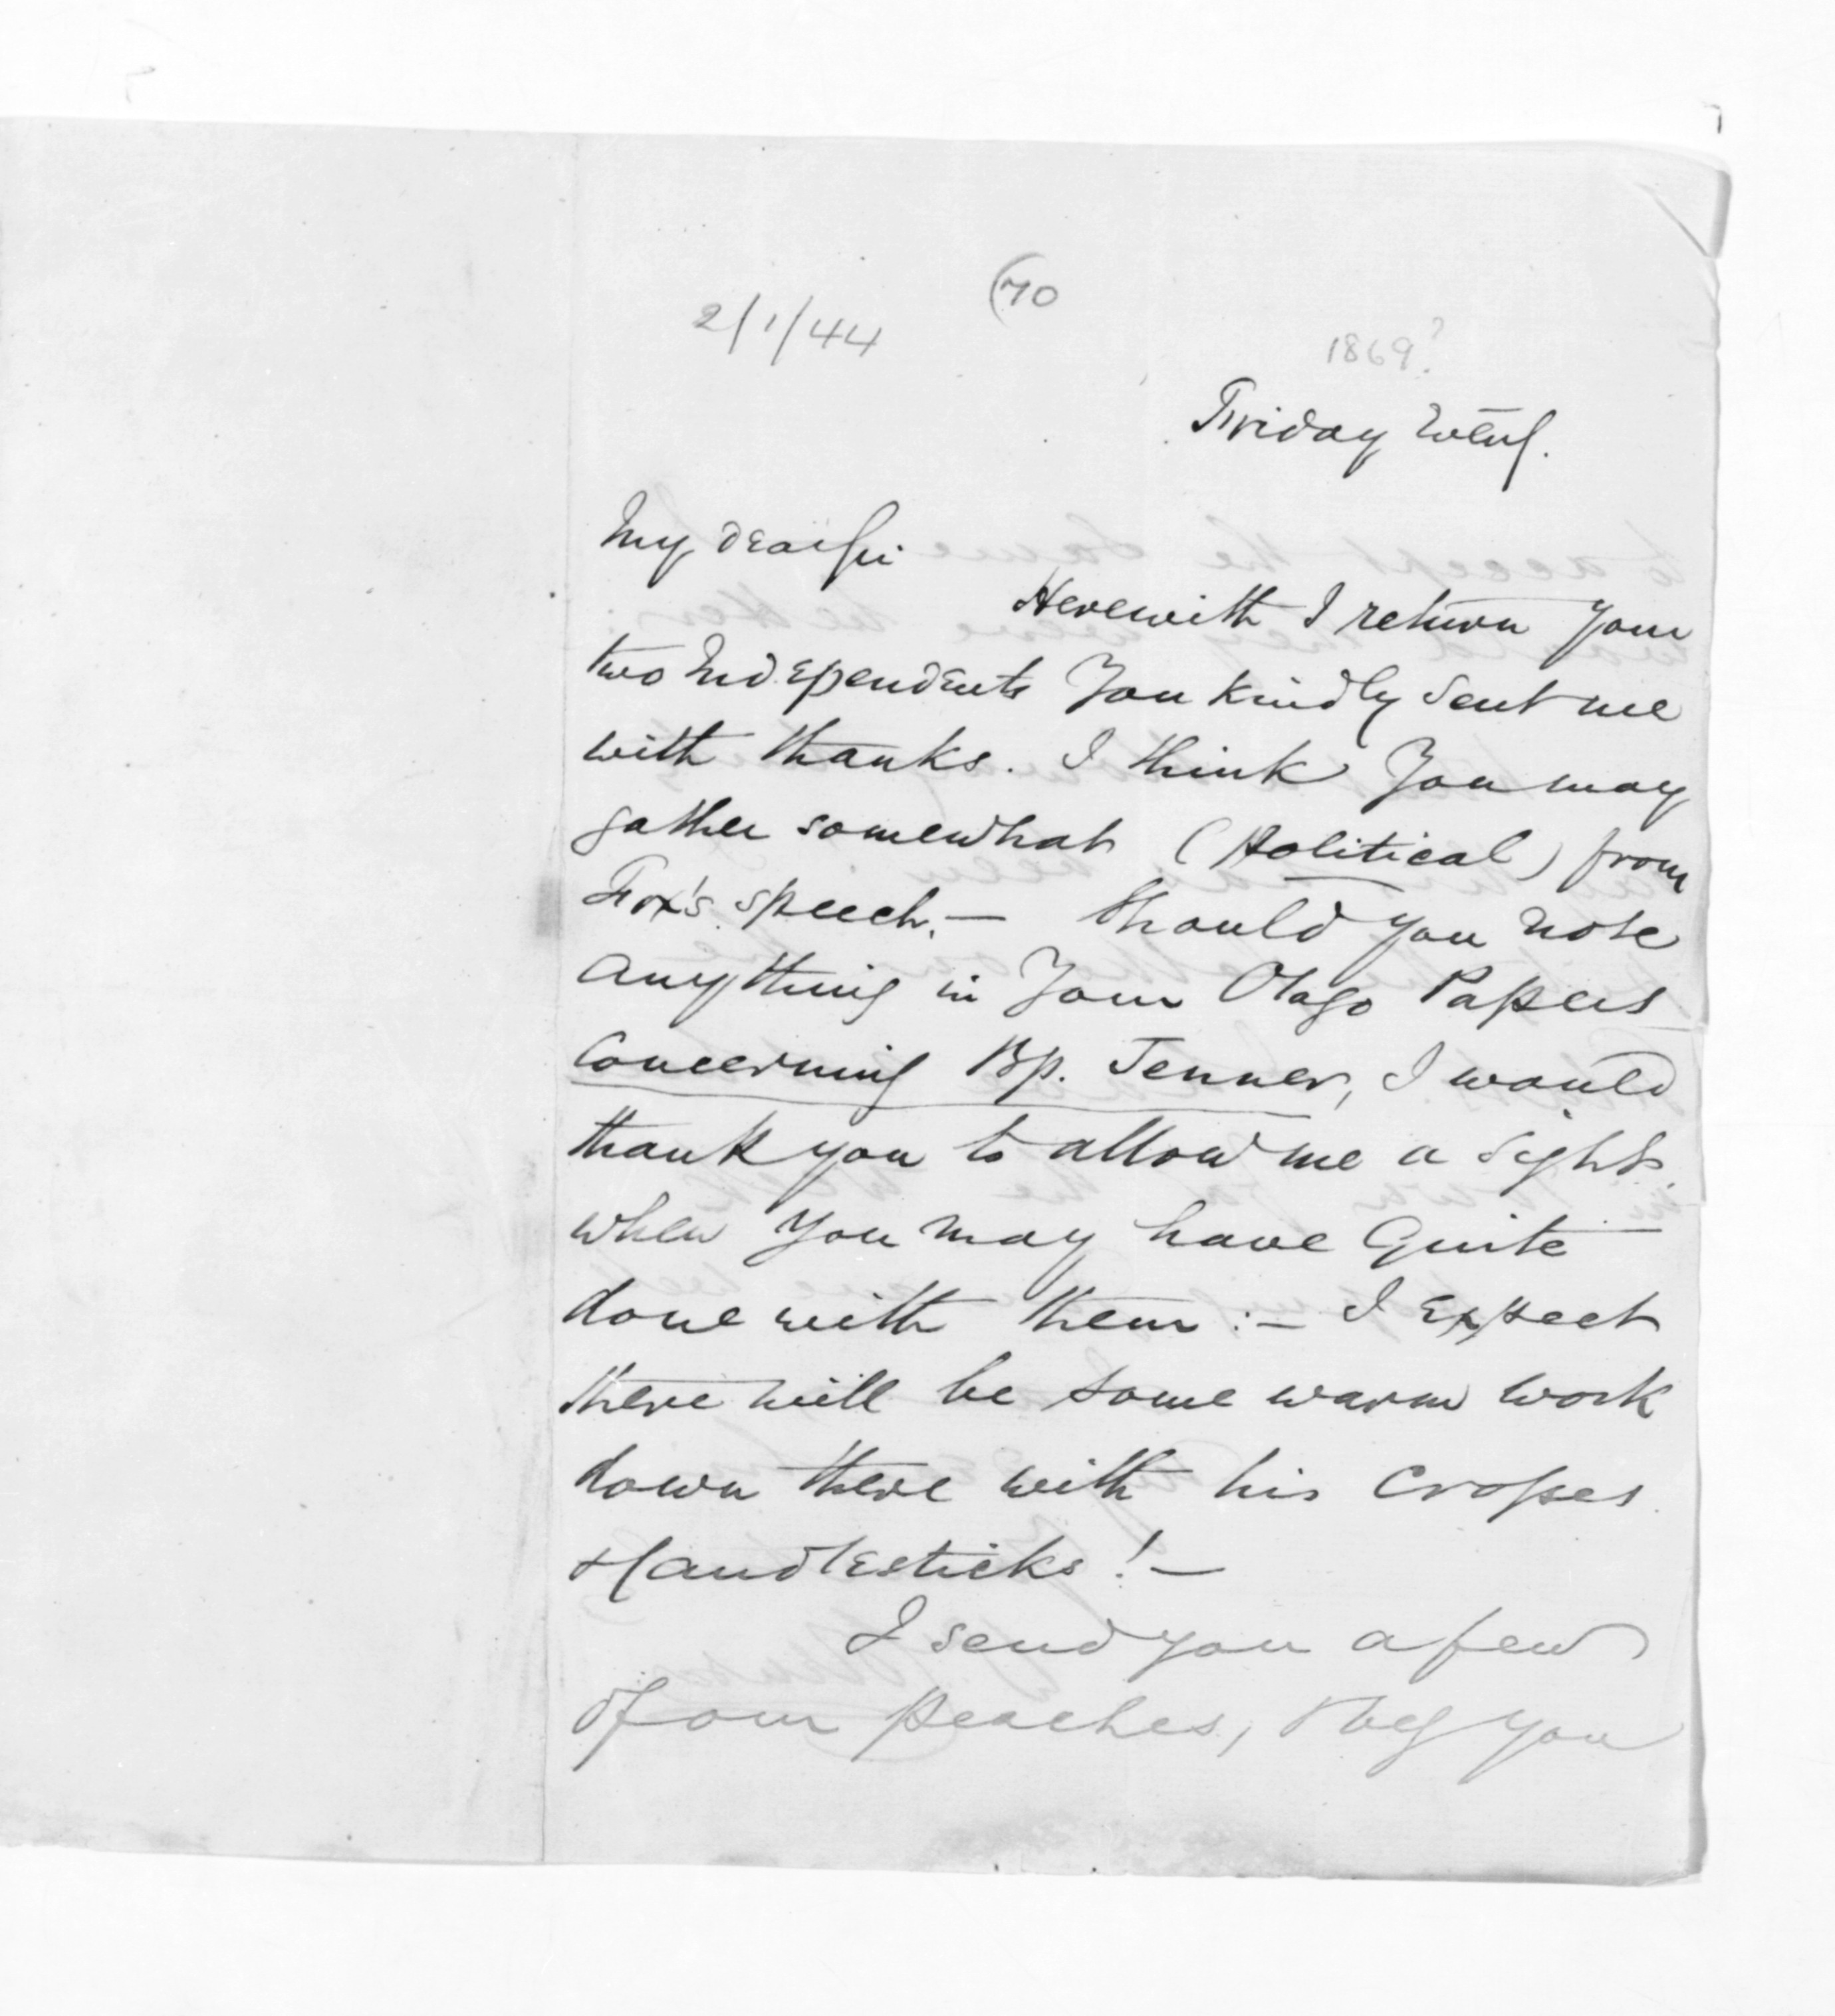 (70
2/1/44
1869?
Friday Evg.
My dear Sir
Herewith I return your
two Independents you kindly sent me
with thanks. I think you may
gather somewhat (Political) from
Fox's speech. — Should you note
anything in your Otago Papers
concerning Bp. Jenner, I would
thank you to allow me a sight
when you may have quite
done with them :— I expect
there will be some warm work
down there with his crosses
& Candlesticks! —
I send you a few
of our peaches, & beg you